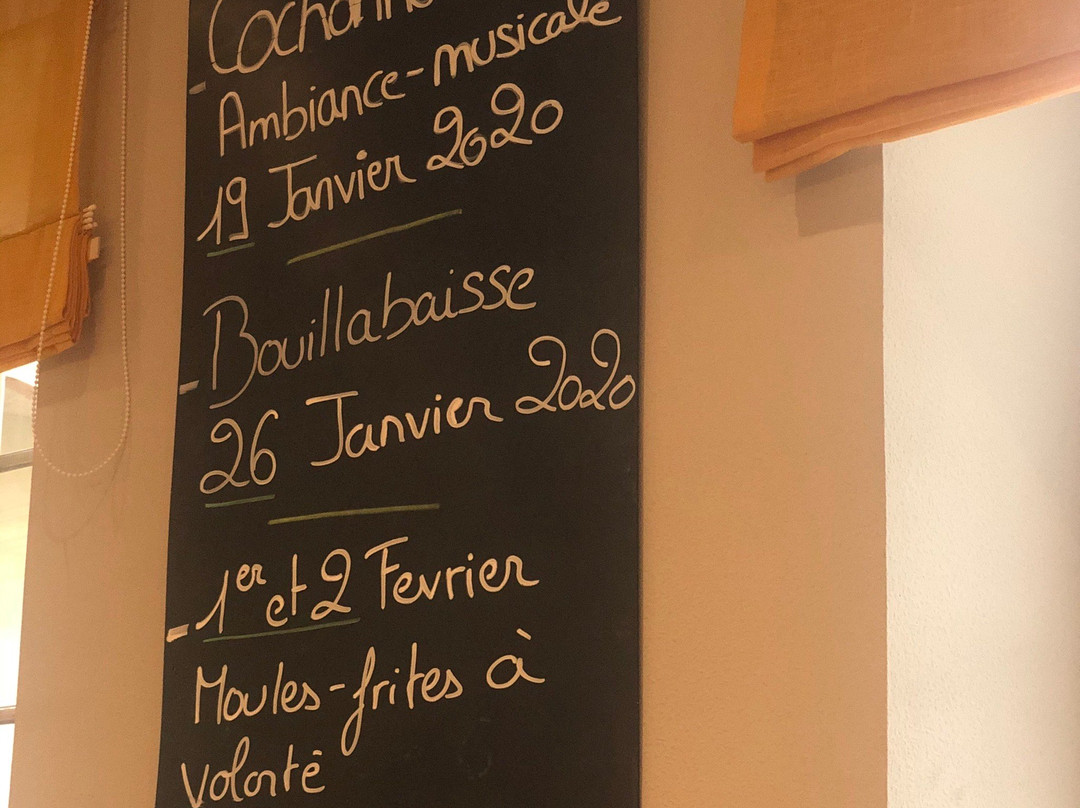 Ambiance-musicale
19 Janvier 2020
- Bouillabaisse
26 Janvier 2020
- 1er et 2 Fevrier
Moules-frites à
volonté